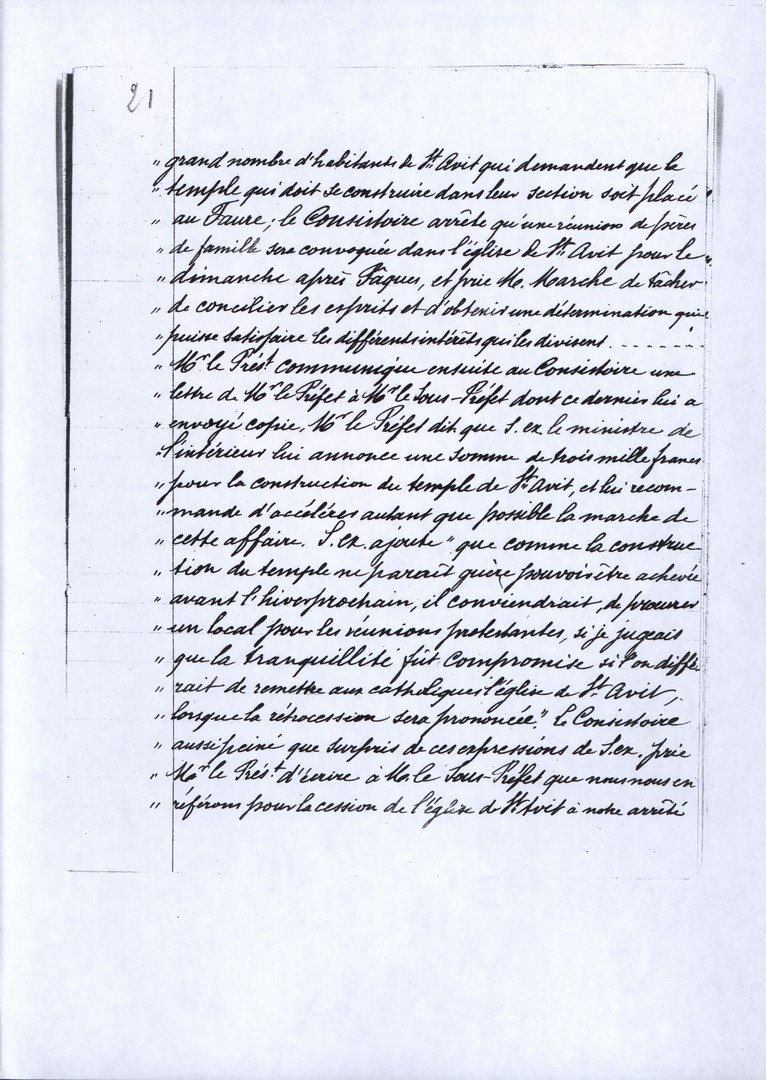 21
" grand nombre d'habitants de St Avit qui demandent que le
" temple qui doit se construire dans leur section soit placé
" au Faure; le Consistoire arrête qu'une réunion de pères
" de famille sera convoquée dans l'église de St Avit pour le
" dimanche après Pâques, et prie M. Marche de tâcher
" de concilier les esprits et d'obtenir une détermination qui
" puisse satisfaire les différents intérêts qui les divisent . . . . . . . .
" Mr le Prést communique ensuite au Consistoire une
" lettre de Mr le Préfet à Mr le Sous-Préfet dont ce dernier lui a
" envoyé copie. Mr le Préfet dit que S. ex le ministre de
" l'intérieur lui annonce une somme de trois mille francs
" pour la construction du temple de St Avit, et lui recom-
" mande d'accélérer autant que possible la marche de
" cette affaire. S. ex. ajoute " que comme la construc
" tion du temple ne paraît guère pouvoir être achevée
" avant l'hiver prochain, il conviendrait, de procurer
" un local pour les réunions protestantes, si je jugeais
" que la tranquillité fût compromise si l'on diffé-
" rait de remettre aux catholiques l'église de St Avit,
" lorsque la rétrocession sera prononcée." Le Consistoire
" aussi peiné que surpris de ces expressions de S. ex, prie
" Mr le Prést d'écrire à M. le Sous-Préfet que nous nous en
" référons pour la cession de l'église de St Avit à notre arrêté